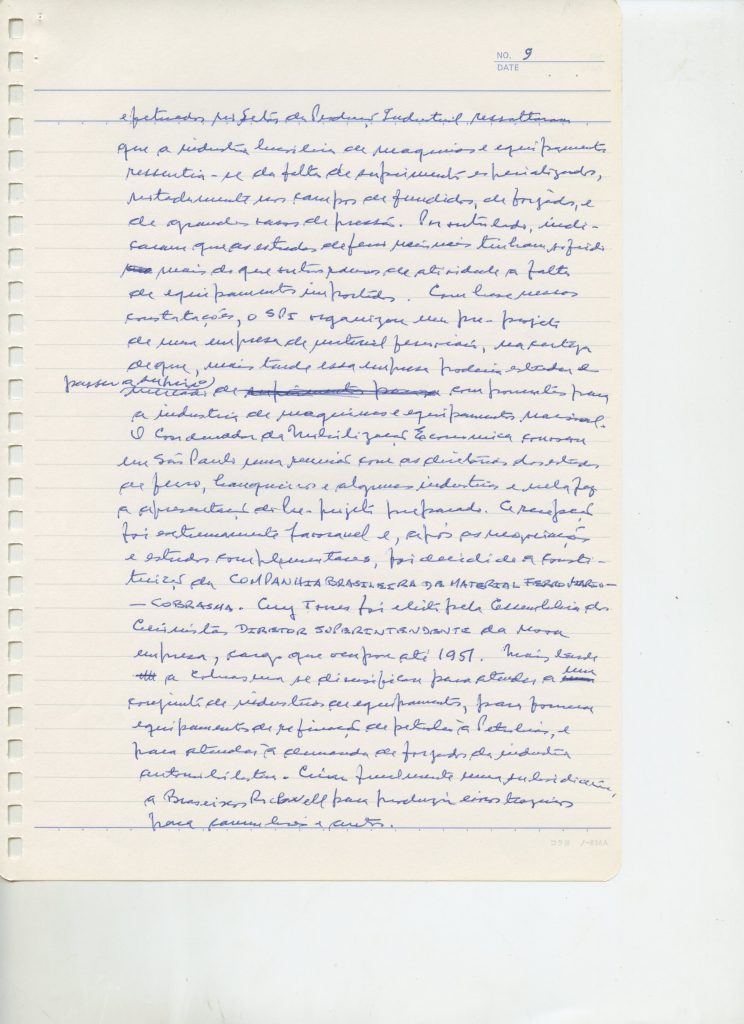 NO. 9
DATE
efetuados no Setor da Produção Industrial ressaltaram
que a industria brasileira de maquinas e equipamentos
ressentia-se da falta de suprimentos especializados,
notadamente nos campos de fundidos, de forjados, e
de grandes vasos de pressão. Por outro lado, indi-
caram que as estradas de ferro nacionais tinham sofrido
mais do que outros ramos de atividade a falta
de equipamentos importados. Com base nessas
constatações, o SPI organizou um pre-projeto
de uma empresa de material ferroviario, na certeza
de que, mais tarde essa empresa poderia estender
passar a suprir
mercado de suprimentos para componentes para
a industria de maquinas e equipamentos nacional.
O Coordenador da Mobilização Economica convocou
em São Paulo uma reunião com as diretorias das estradas
de ferro, banqueiros e algumas industrias e nela fez
a apresentação do Pre-projeto preparado. A recepção
foi extremamente favoravel e, após as negociações
e estudos complementares, foi decidida a consti-
tuição da COMPANHIA BRASILEIRA DE MATERIAL FERROVIARIO -
- COBRASMA. Ary Torres foi eleito pela Assembleia dos
Acionistas DIRETOR SUPERINTENDENTE da nova
empresa, cargo que ocupou até 1951. Mais tarde
a Cobrasma se diversificou para atender a um
conjunto de industrias de equipamentos, para fornecer
equipamentos de refinação de petroleo à Petrobras, e
para atender à demanda de forjados da industria
automobilistica. Criou finalmente uma subsidiaria,
a Braseixos Rockwell para produzir eixos traseiros
para caminhões e autos.